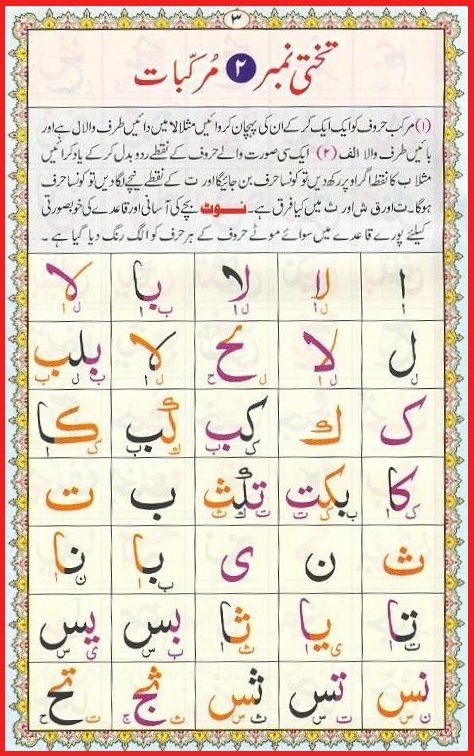 ۳
تختی نمبر ۲ مُرکّبات
(۱) مرکب حروف کو ایک ایک کر کے ان کی پہچان کروائیں مثلاً لا میں دائیں طرف والا ل ہے اور
بائیں طرف والا الف (۲) ایک سی صورت والے حروف کے نقطے ردو بدل کر کے یاد کرائیں
مثلاً ب کا نقطہ اگر اوپر رکھ دیں تو کونسا حرف بن جائیگا اور ت کے نقطے نیچے لگا دیں تو کونسا حرف
ہوگا۔ ت اور ق ش اور ث میں کیا فرق ہے۔ نوٹ بچے کی آسانی اور قاعدے کی خوبصورتی
کیلئے پورے قاعدے میں سوائے موٹے حروف کے ہر حرف کو الگ رنگ دیا گیا ہے ۔
ا لا لا با لا
ل ا ل ا ب ا ل ا
ل لا لح لا بلب
ل ا ل ح ل ا ب ل ب
ک ك کب كب کا
ک ب ك ب ک ا
کا بکت تلث ب ت
ک ا ب ک ت ت ل ث
ث ن ی با نا
ب ا ن ا
تا یا ثا بس یس
ت ا ی ا ث ا ب س ی س
نس تس ثس ثج تح
ن س ت س ث س ث ج ت ح